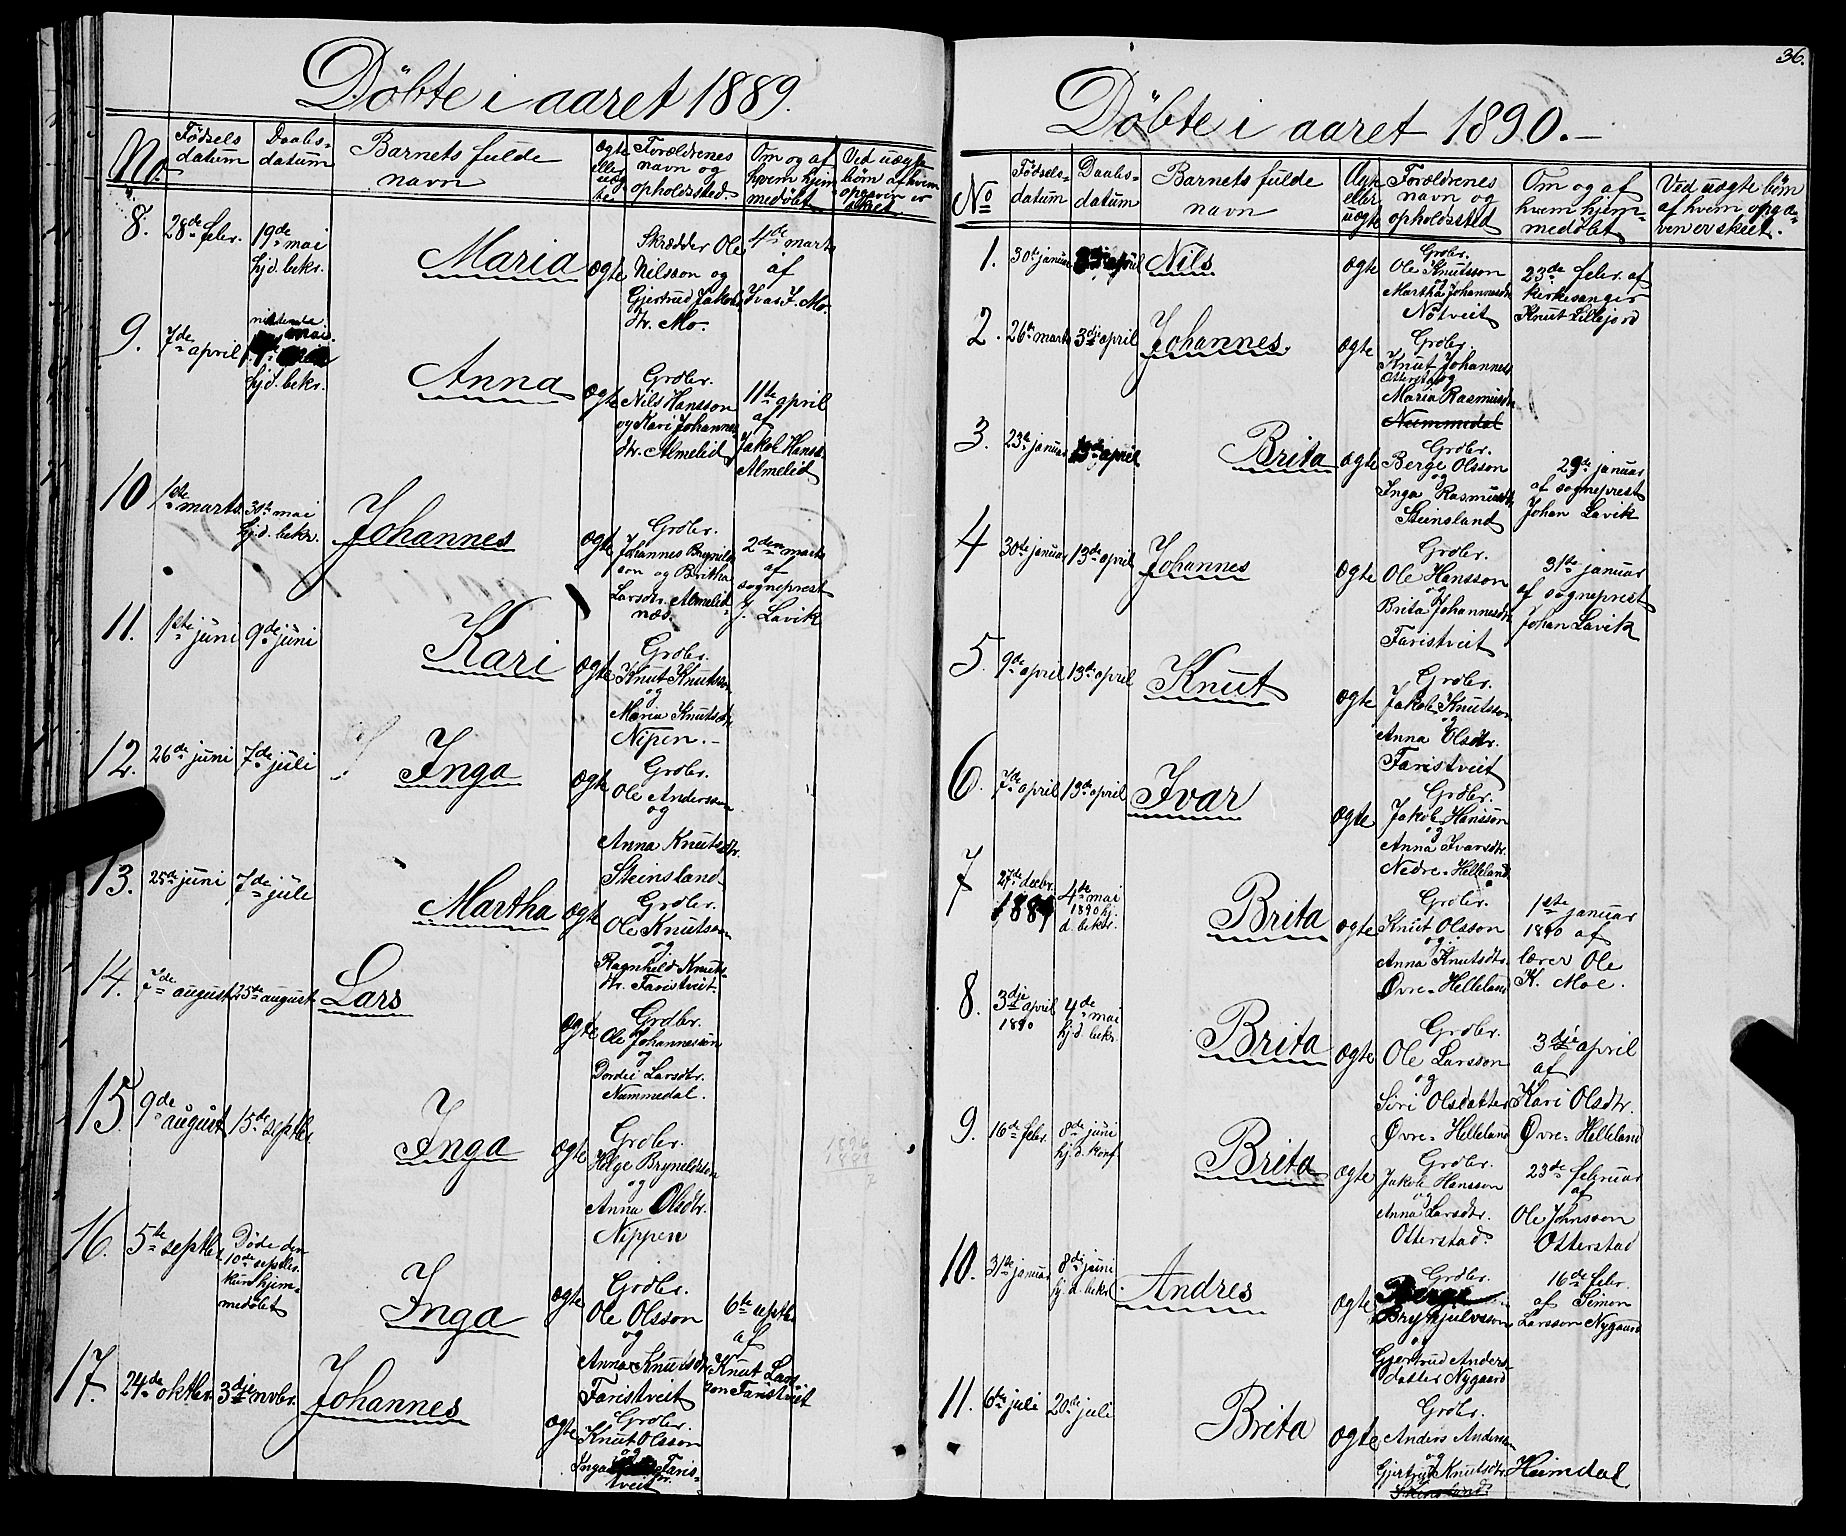 Döbte i aaret 1889.
No.
Fødsels datum
Daabs- datum
Barnets fulde navn
ægte eller uæg te
Forældrenes navn og opholdssted.
Om og af hvem hjem medøbt
Ved uægte børn af hvem opgaven er skeet.
8.
28de febr.
19de mai
hjd. bekr.
Maria
ægte
Skrædder Ole
Nilsson og
Gjertrud Jakobs
dtr. Mo.
4de marts
af
Ivar J. Mo.
9.
7de april
nittende
mai.
hjd. bekr.
Anna
ægte
Grdbr.
Nils Hansson
og Kari Johannes
dtr. Almelid
11te april
af
Jakob Hanss.
Almelid
10
1ste marts
30te mai
hjd. bekr.
Johannes
ægte
Grdbr.
Johannes Brynils
son og Britha
Larsdtr. Almelid-
næs.
2den marts
af
sogneprest
J. Lavik
11.
1ste juni
9de juni
Kari
ægte
Grdbr.
Knut Knutsson
og
Maria Knutsdtr.
Nipen.-
12.
26de juni
7de juli
Inga
ægte
Grdbr.
Ole Andersson
og
Anna Knutsdtr.
Steinsland.
13.
25de juni
7de juli
Martha
ægte
Grdbr.
Ole Knutsson
og
Ragnhild Knuts-
dtr. Faristveit.
14.
7de august
25te august
Lars
ægte
Grdbr.
Ole Johannesson
og
Dordei Larsdtr.
Nummedal.
15
9de august
15de septbr.
Inga
ægte
Grdbr.
Helge Brynildsson
og
Anna Olsdtr.
Nippen
1896
1889
7
16.
5te septbr.
Døde den
10de septbr.
kun hjem-
medøbt
Inga
ægte
Grdbr.
Ole Olsson
og
Anna Knutsdtr.
Faristveit
6te septbr.
af
Knut Lars
son Faristveit
17.
24de oktbr.
3dje novbr.
Johannes
ægte
Grdbr.
Knut Olsson
og
Inga
Faris-
tveit
36.
Döbte i aaret 1890.-
No
Fødsels- datum
Daabs- datum
Barnets fulde navn
Ægte eller uægte
Forældrenes navn og opholdssted
Om og af hvem hjem- medøbt
Ved uægte børn af hvem opga- ven er skeet.
1.
30te januar
april
Nils
ægte
Grdbr.
Ole Knutsson
og
Martha Johannesdtr.
Nötveit
23de febr. af
kirkesanger
Knut Lillejord
2.
26te marts
3dje april
Johannes.
ægte
Grdbr.
Knut Johannes
Otterstad og
Maria Rasmusdtr.
Nummedal
3.
23de januar
13de april
Brita
ægte
Grdbr.
Berge Olsson
og
Inga Rasmusdtr.
Steinsland
29de januar
af sogneprest
Johan Lavik
4
30te januar
13de april
Johannes
ægte
Grdbr.
Ole Hansson
og
Brita Johannesdtr.
Faristveit
31te januar
af sogneprest
Johan Lavik
5.
9de april
13de april
Knut
ægte
Grdbr.
Jakob Knutsson
og
Anna Olsdtr.
Faristveit
6.
7de april
13de april
Ivar
ægte
Grdbr.
Jakob Hansson
og
Anna Ivarsdtr.
Nedre-Helleland
7
27de decbr.
1889
4de mai
1890 hj.
d. bekr.
Brita
ægte
Grdbr.
Knut Olsson
og
Anna Knutsdtr.
Øvre-Helleland
1ste januar
1890 af
lærer Ole
K. Moe.
8.
3dje april
1890
4de mai
hj.d. bekr.
Brita
ægte
Grdbr.
Ole Larsson
og
Siri Olsdatter
Øvre-Helleland
3dje april
af
Kari Olsdtr.
Øvre-Helleland
9.
16de febr.
8de juni
hj.d. konf.
Brita
ægte
Grdbr.
Jakob Hansson
og
Anna Larsdtr.
Otterstad.
23de februar
af
Ole Johnsson
Otterstad
10.
31te januar
8de juni
hj. d. bekr.
Andres
ægte
Grdbr.
Berge
Brynjulvsson
og
Gjertrud Anders-
datter Nygaard
16de febr.
af Simon
Larsson Nygaard
11.
6te juli
20de juli
Brita
ægte
Grdbr.
Anders Andersson
og
Gjertrud Knutsdtr.
Steinsland
Heimdal